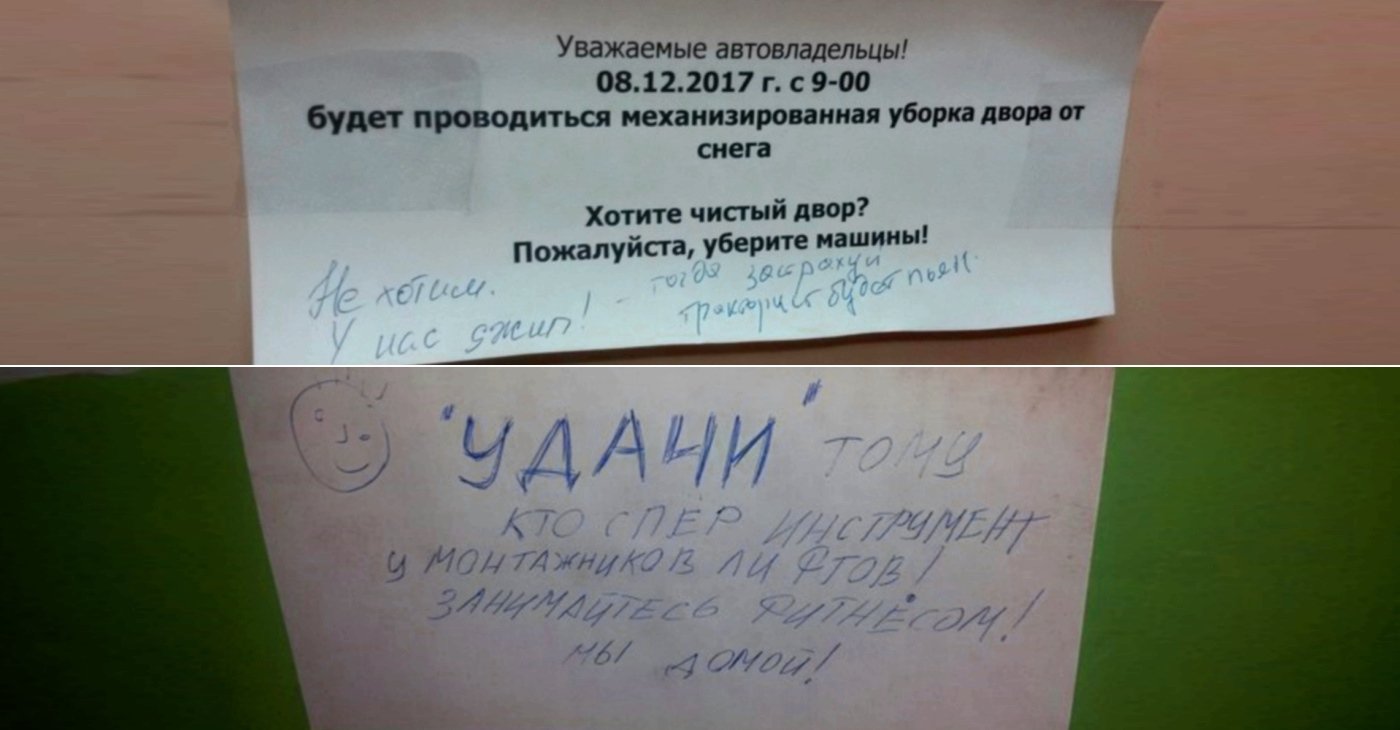 Уважаемые автовладельцы!
08.12.2017 г. с 9-00
будет проводиться механизированная уборка двора от
снега
Хотите чистый двор?
Пожалуйста, уберите машины!
Не хотим.
У нас джип!
- тогда застрахуй
тракторист будет пьян.
"УДАЧИ" ТОМУ
КТО СПЕР ИНСТРУМЕНТ
У МОНТАЖНИКОВ ЛИФТОВ!
ЗАНИМАЙТЕСЬ ФИТНЕСОМ!
МЫ ДОМОЙ!